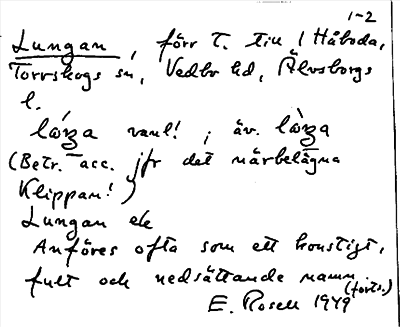 1-2
Lungan, förr t. till 1 Håboda,
Torrskogs sn, Vedbo hd, Älvsborgs
l.
vanl! ; äv.
(Betr. acc. jfr det närbelägna
Klippan!)
Lungan ek
Anföres ofta som ett konstigt,
fult och nedsättande namn
(forts.)
E. Rosell 1949